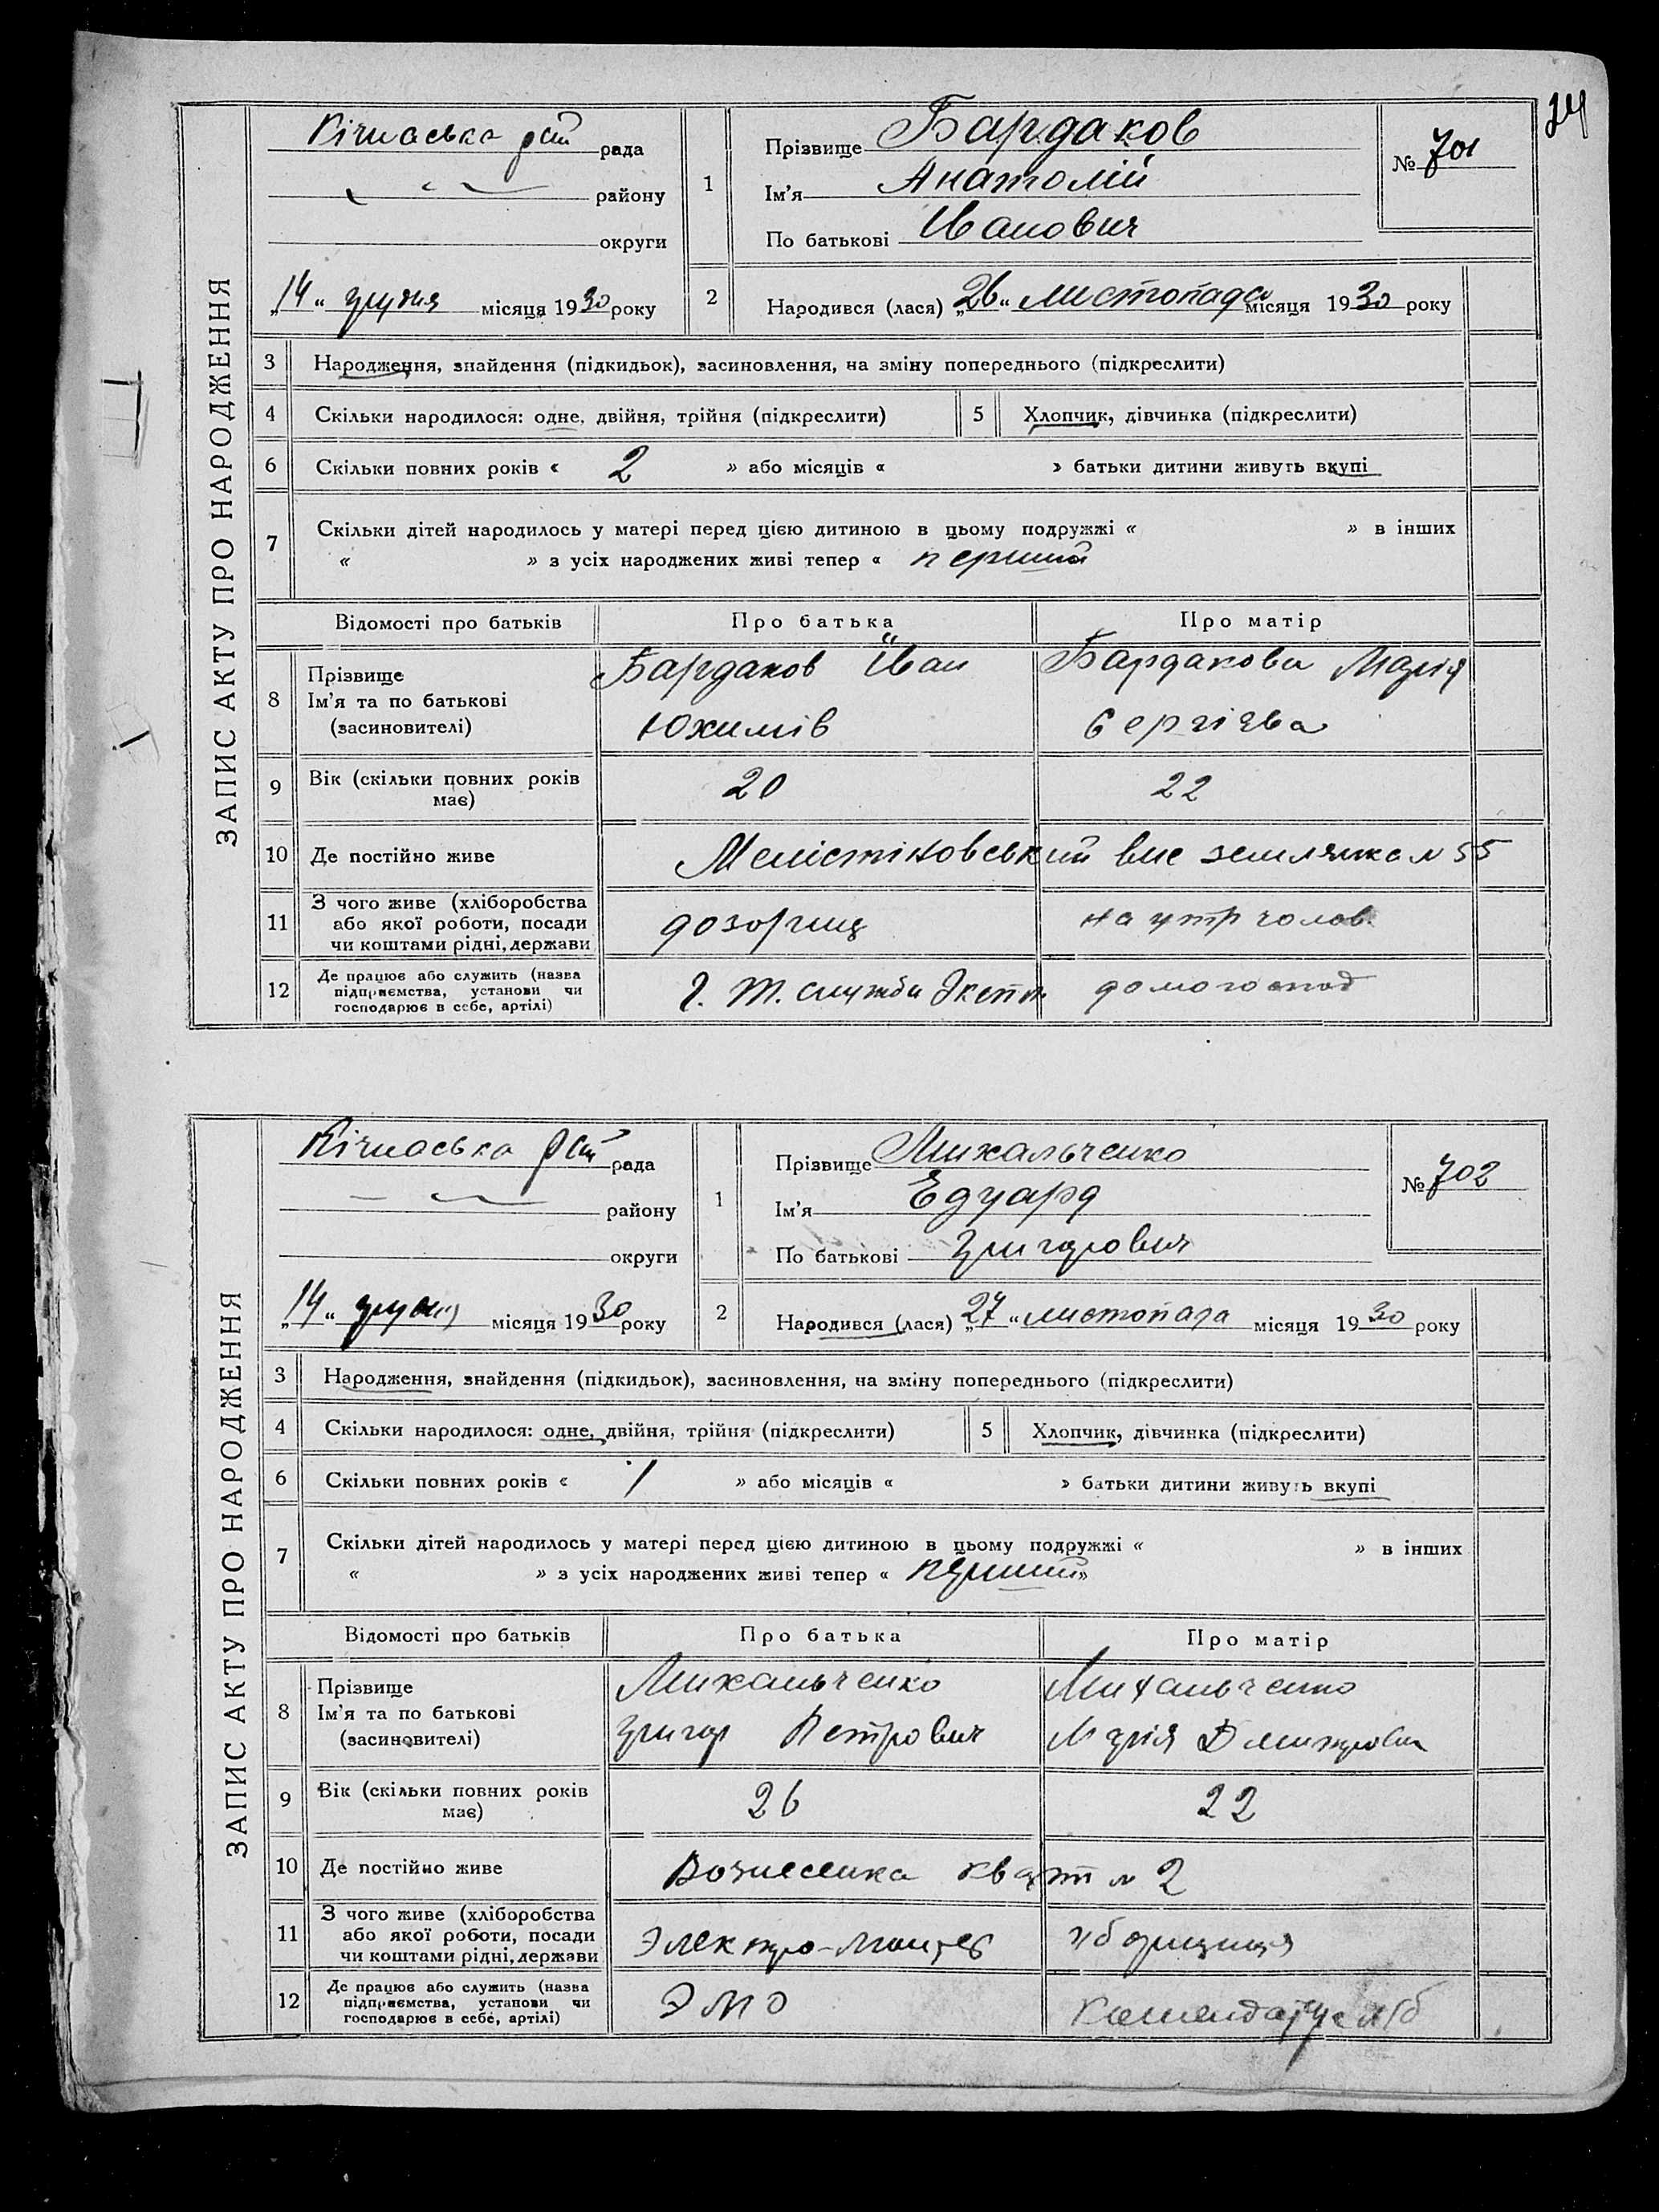 24
ЗАПИС АКТУ ПРО НАРОДЖЕННЯ
Кічкаська рай рада
району
округи
„14“ грудня місяця 1930 року
1
Прізвище Бардаков
Ім'я Анатолій
По батькові Іванович
№ 701
2 Народився (лася) „26“ листопада місяця 1930 року
3 Народження, знайдення (підкидьок), засиновлення, на зміну попереднього (підкреслити)
4 Скільки народилося: одне, двійня, трійня (підкреслити) 5 Хлопчик, дівчинка (підкреслити)
6 Скільки повних років « 2 » або місяців « » батьки дитини живуть вкупі
7 Скільки дітей народилось у матері перед цією дитиною в цьому подружжі « » в інших
« » з усіх народжених живі тепер « перший
Відомості про батьків Про батька Про матір
8 Прізвище Бардаков Іван Бардакова Марія
Ім'я та по батькові Юхимів Сергієва
(засиновителі)
9 Вік (скільки повних років має) 20 22
10 Де постійно живе землянка № 55
11 З чого живе (хліборобства
або якої роботи, посади
чи коштами рідні, держави дозорець на утр чолов.
12 Де працює або служить (назва
підприємства, установи чи
господарює в себе, артілі) служби домогоспод
ЗАПИС АКТУ ПРО НАРОДЖЕННЯ
Кічкаська рай рада
району
округи
„14“ грудня місяця 1930 року
1
Прізвище Михальченко
Ім'я Едуард
По батькові Григорович
№ 702
2 Народився (лася) „27“ листопада місяця 1930 року
3 Народження, знайдення (підкидьок), засиновлення, на зміну попереднього (підкреслити)
4 Скільки народилося: одне, двійня, трійня (підкреслити) 5 Хлопчик, дівчинка (підкреслити)
6 Скільки повних років « 1 » або місяців « » батьки дитини живуть вкупі
7 Скільки дітей народилось у матері перед цією дитиною в цьому подружжі « » в інших
« » з усіх народжених живі тепер « перший »
Відомості про батьків Про батька Про матір
8 Прізвище Михальченко Михальченко
Ім'я та по батькові Григор Петрович Марія Дмитровна
(засиновителі)
9 Вік (скільки повних років має) 26 22
10 Де постійно живе Вознесенка кварт № 2
11 З чого живе (хліборобства
або якої роботи, посади
чи коштами рідні, держави Электро-монтер
12 Де працює або служить (назва
підприємства, установи чи
господарює в себе, артілі) ЭМО